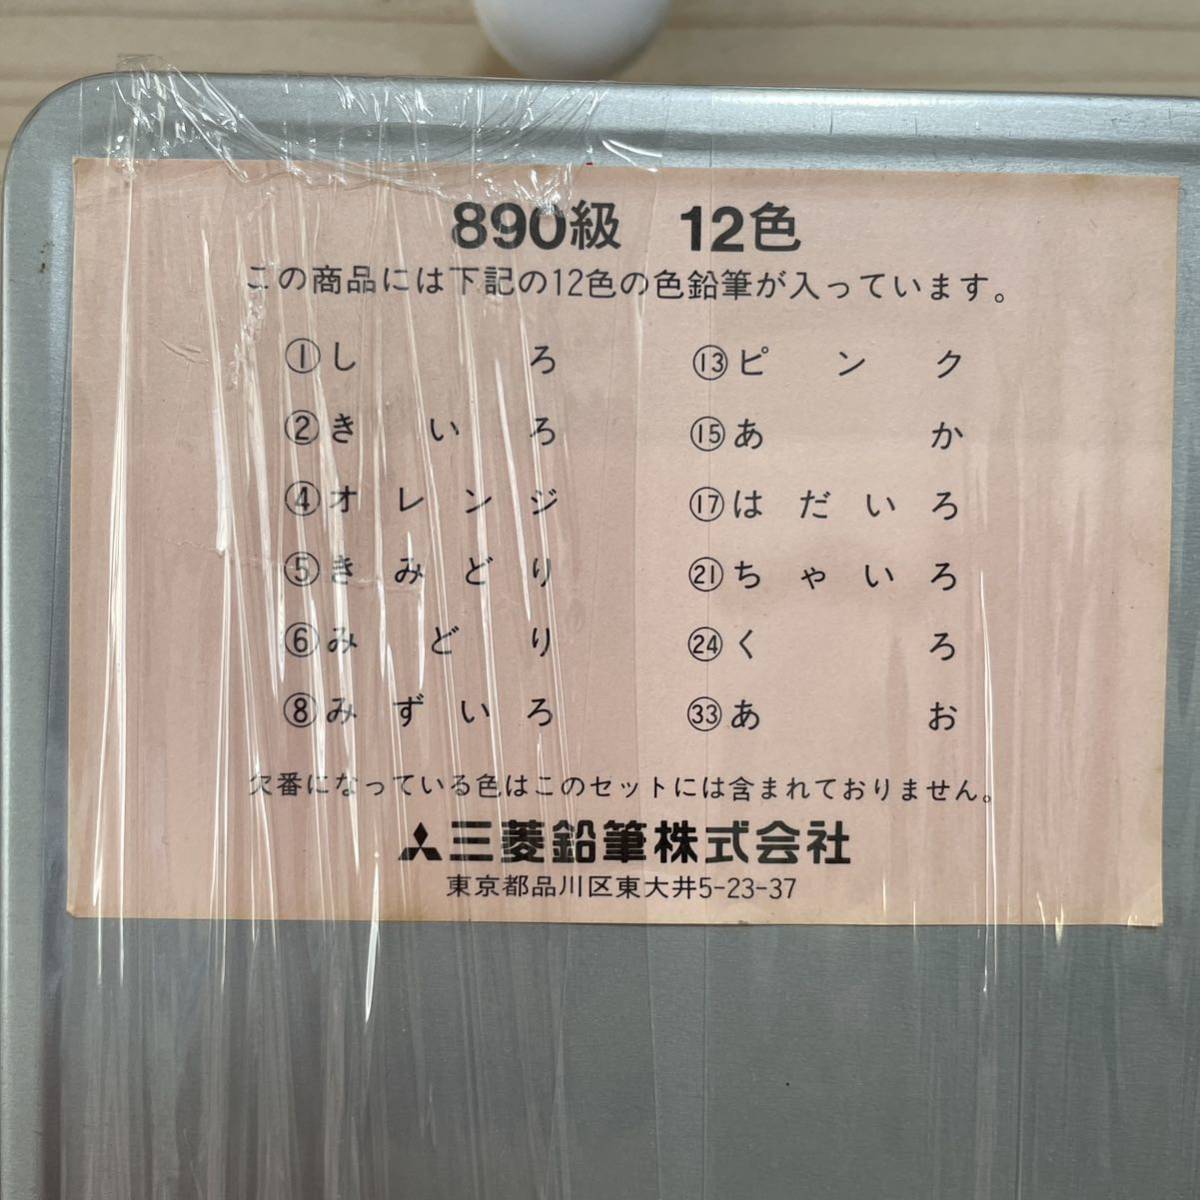 890級 12色
この商品には下記の12色の色鉛筆が入っています。
①しろ
②きいろ
④オレンジ
⑤きみどり
⑥みどり
⑧みずいろ
⑬ピンク
⑮あか
⑰はだいろ
㉑ちゃいろ
㉔くろ
㉝あお
欠番になっている色はこのセットには含まれておりません。
三菱鉛筆株式会社
東京都品川区東大井5-23-37